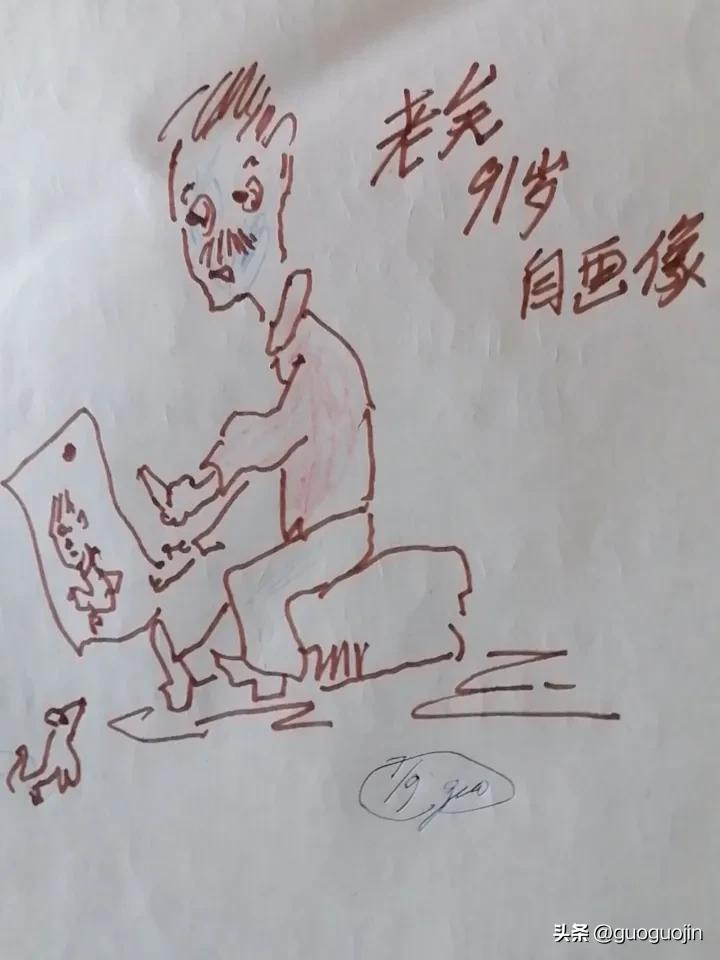 老
91岁
自画像
7/9 guo
头条 @guoguojin